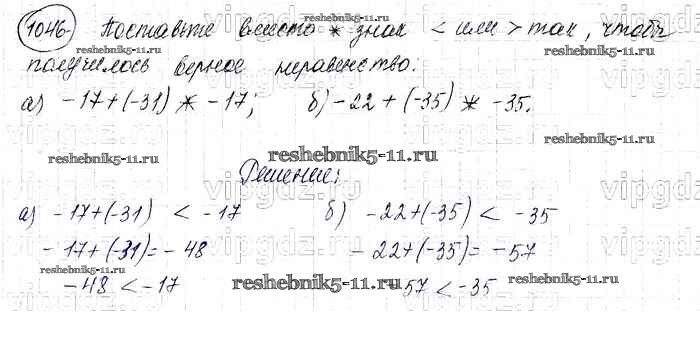 1046. Поставьте вместо * знак < или > так, чтобы
получилось верное неравенство.
а) -17+(-31) * -17; б) -22+(-35) * -35.
Решение:
а) -17+(-31) < -17 б) -22+(-35) < -35
-17+(-31)= -48 -22+(-35)= -57
-48 < -17 -57 < -35
reshebnik5-11.ru
reshebnik5-11.ru
reshebnik5-11.ru
reshebnik5-11.ru
reshebnik5-11.ru
reshebnik5-11.ru
reshebnik5-11.ru
reshebnik5-11.ru
vipgdz.ru
vipgdz.ru
vipgdz.ru